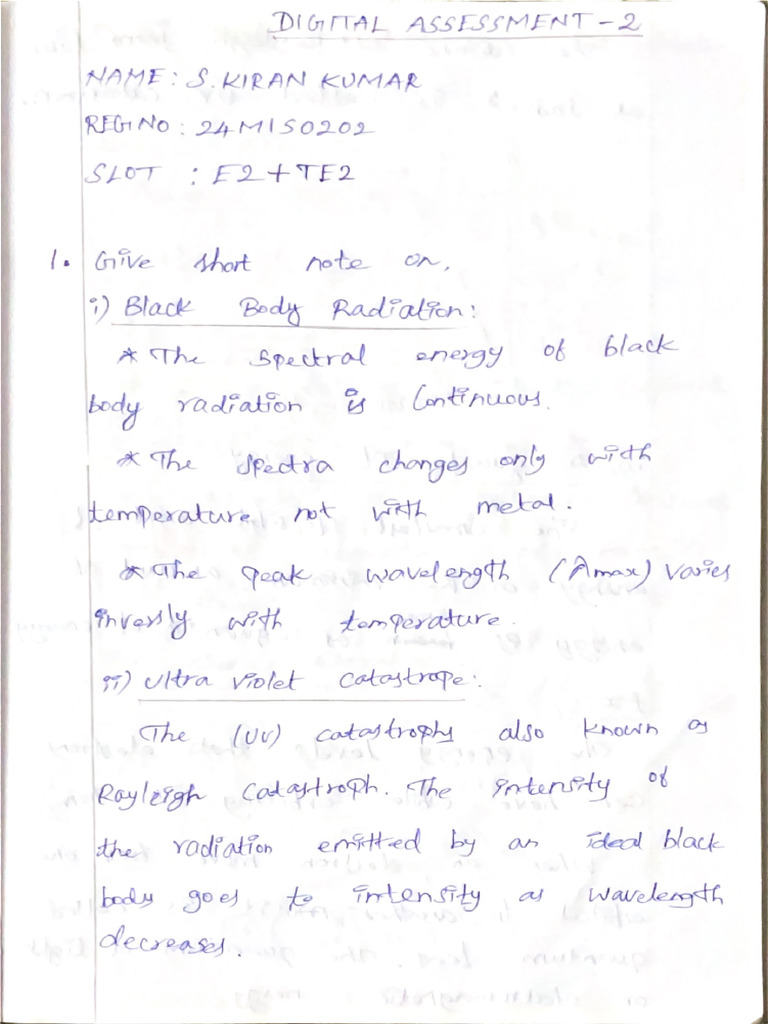 DIGITAL ASSESSMENT - 2
NAME : S. KIRAN KUMAR
REG NO : 24MIS0202
SLOT : E2 + TE2
1. Give short note on,
i) Black Body Radiation :
* The Spectral energy of black
body radiation is Continuous.
* The spectra changes only with
temperature not with metal.
* The peak wavelength (λmax) varies
inversly with temperature.
ii) Ultra violet Catastrope :
The (UV) catastrophs also known as
Rayleigh Catastroph. The intensity of
the radiation emitted by an ideal black
body goes to intensity as wavelength
decreases.